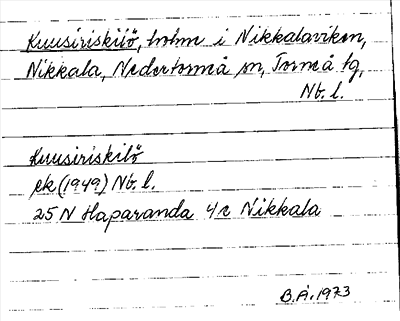 Kuusiriskilö, holme i Nikkalaviken,
Nikkala, Nedertorneå sn, Torneå tg,
Nb. l.
Kuusiriskilö
ek (1949) Nb. l.
25 N Haparanda 4c Nikkala
B.Å. 1973